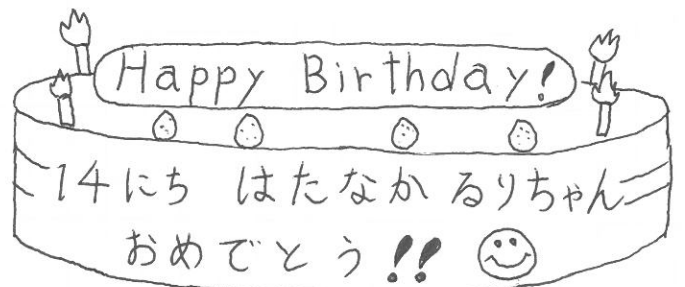 Happy Birthday!
14にち はたなか るりちゃん
おめでとう!!